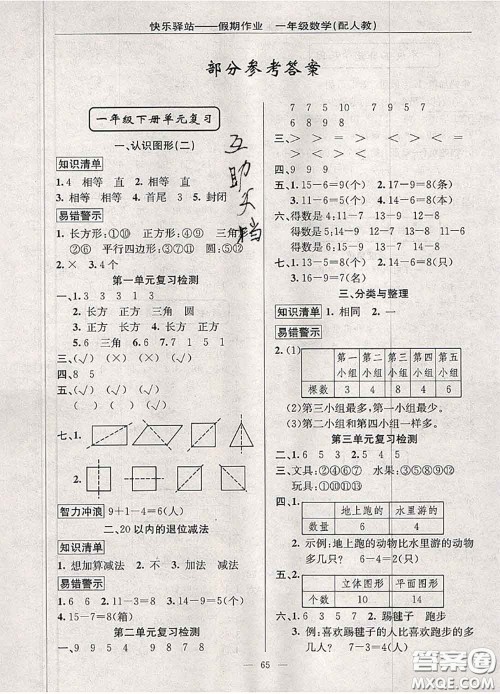 快乐驿站——假期作业 一年级数学(配人教)
部分参考答案
一年级下册单元复习
一、认识图形(二)
知识清单
1.4 相等 直 2.相等 直
3.4 相等 相等 4.首尾 3 5.封闭
易错警示
1.长方形:①⑩ 正方形:④⑨ 三角形:
②⑥ 平行四边形:③⑦⑪ 圆:⑤⑫
2.× 3.4个
第一单元复习检测
一、1.3 3 3 1 3
2.长方 正方 三角 圆
3.长方 正方 4.长方
5.6 三角 6.正方
三、(√) ( ) (√) ( )
四、8 5
五、(√) ( ) ( ) (√)
( ) (√) (√) ( )
七、1.
2.
智力冲浪 9+1-4=6(人)
二、20以内的退位减法
知识清单
1.想加算减法 2.不 3.加法 减法
易错警示
1.6 6 2.11-3=8 3.14-9=5(个)
4.15-7=8(箱)
第二单元复习检测
一、9 9 5 4 9 8 7 8
7 7 5 10 7 9 5 7
8 9 9 7
三、> > > < = >
< < > < > >
四、9 9 9
五、1.15-6=9(个) 2.17-9=8(条)
六、得数是4:11-7 13-9 12-8
得数是6:15-9 14-8 11-5
七、1.13-5=8(只) 2.15-9=6(个)
3.11-8=3(个) 4.14-6=8(只)
三、分类与整理
知识清单 1.相同 2.一
易错警示
2.(1) 第一小组 第二小组 第三小组 第四小组 第五小组
棵数 3 4 8 4 6
(2)第三小组最多,第一小组最少。
(3)第二小组和第四小组一样多。
第三单元复习检测
一、1.6 3 5 3 2.5 4 5
三、文具:②④⑥⑦ 水果:③⑥⑦
玩具:①⑤
四、1. 地上跑的 水里游的
数量 6 4
2.示例:地上跑的动物比水里游的
动物多。
五、1. 立体图形 平面图形
个数 10 14
六、1.6 7 3 5 2.踢毽子 跑步
3.例:喜欢踢毽子的人比喜欢跑步的
多多少人? 7-3=4(人)
互助文档
65
答案圈
MXQE.COM